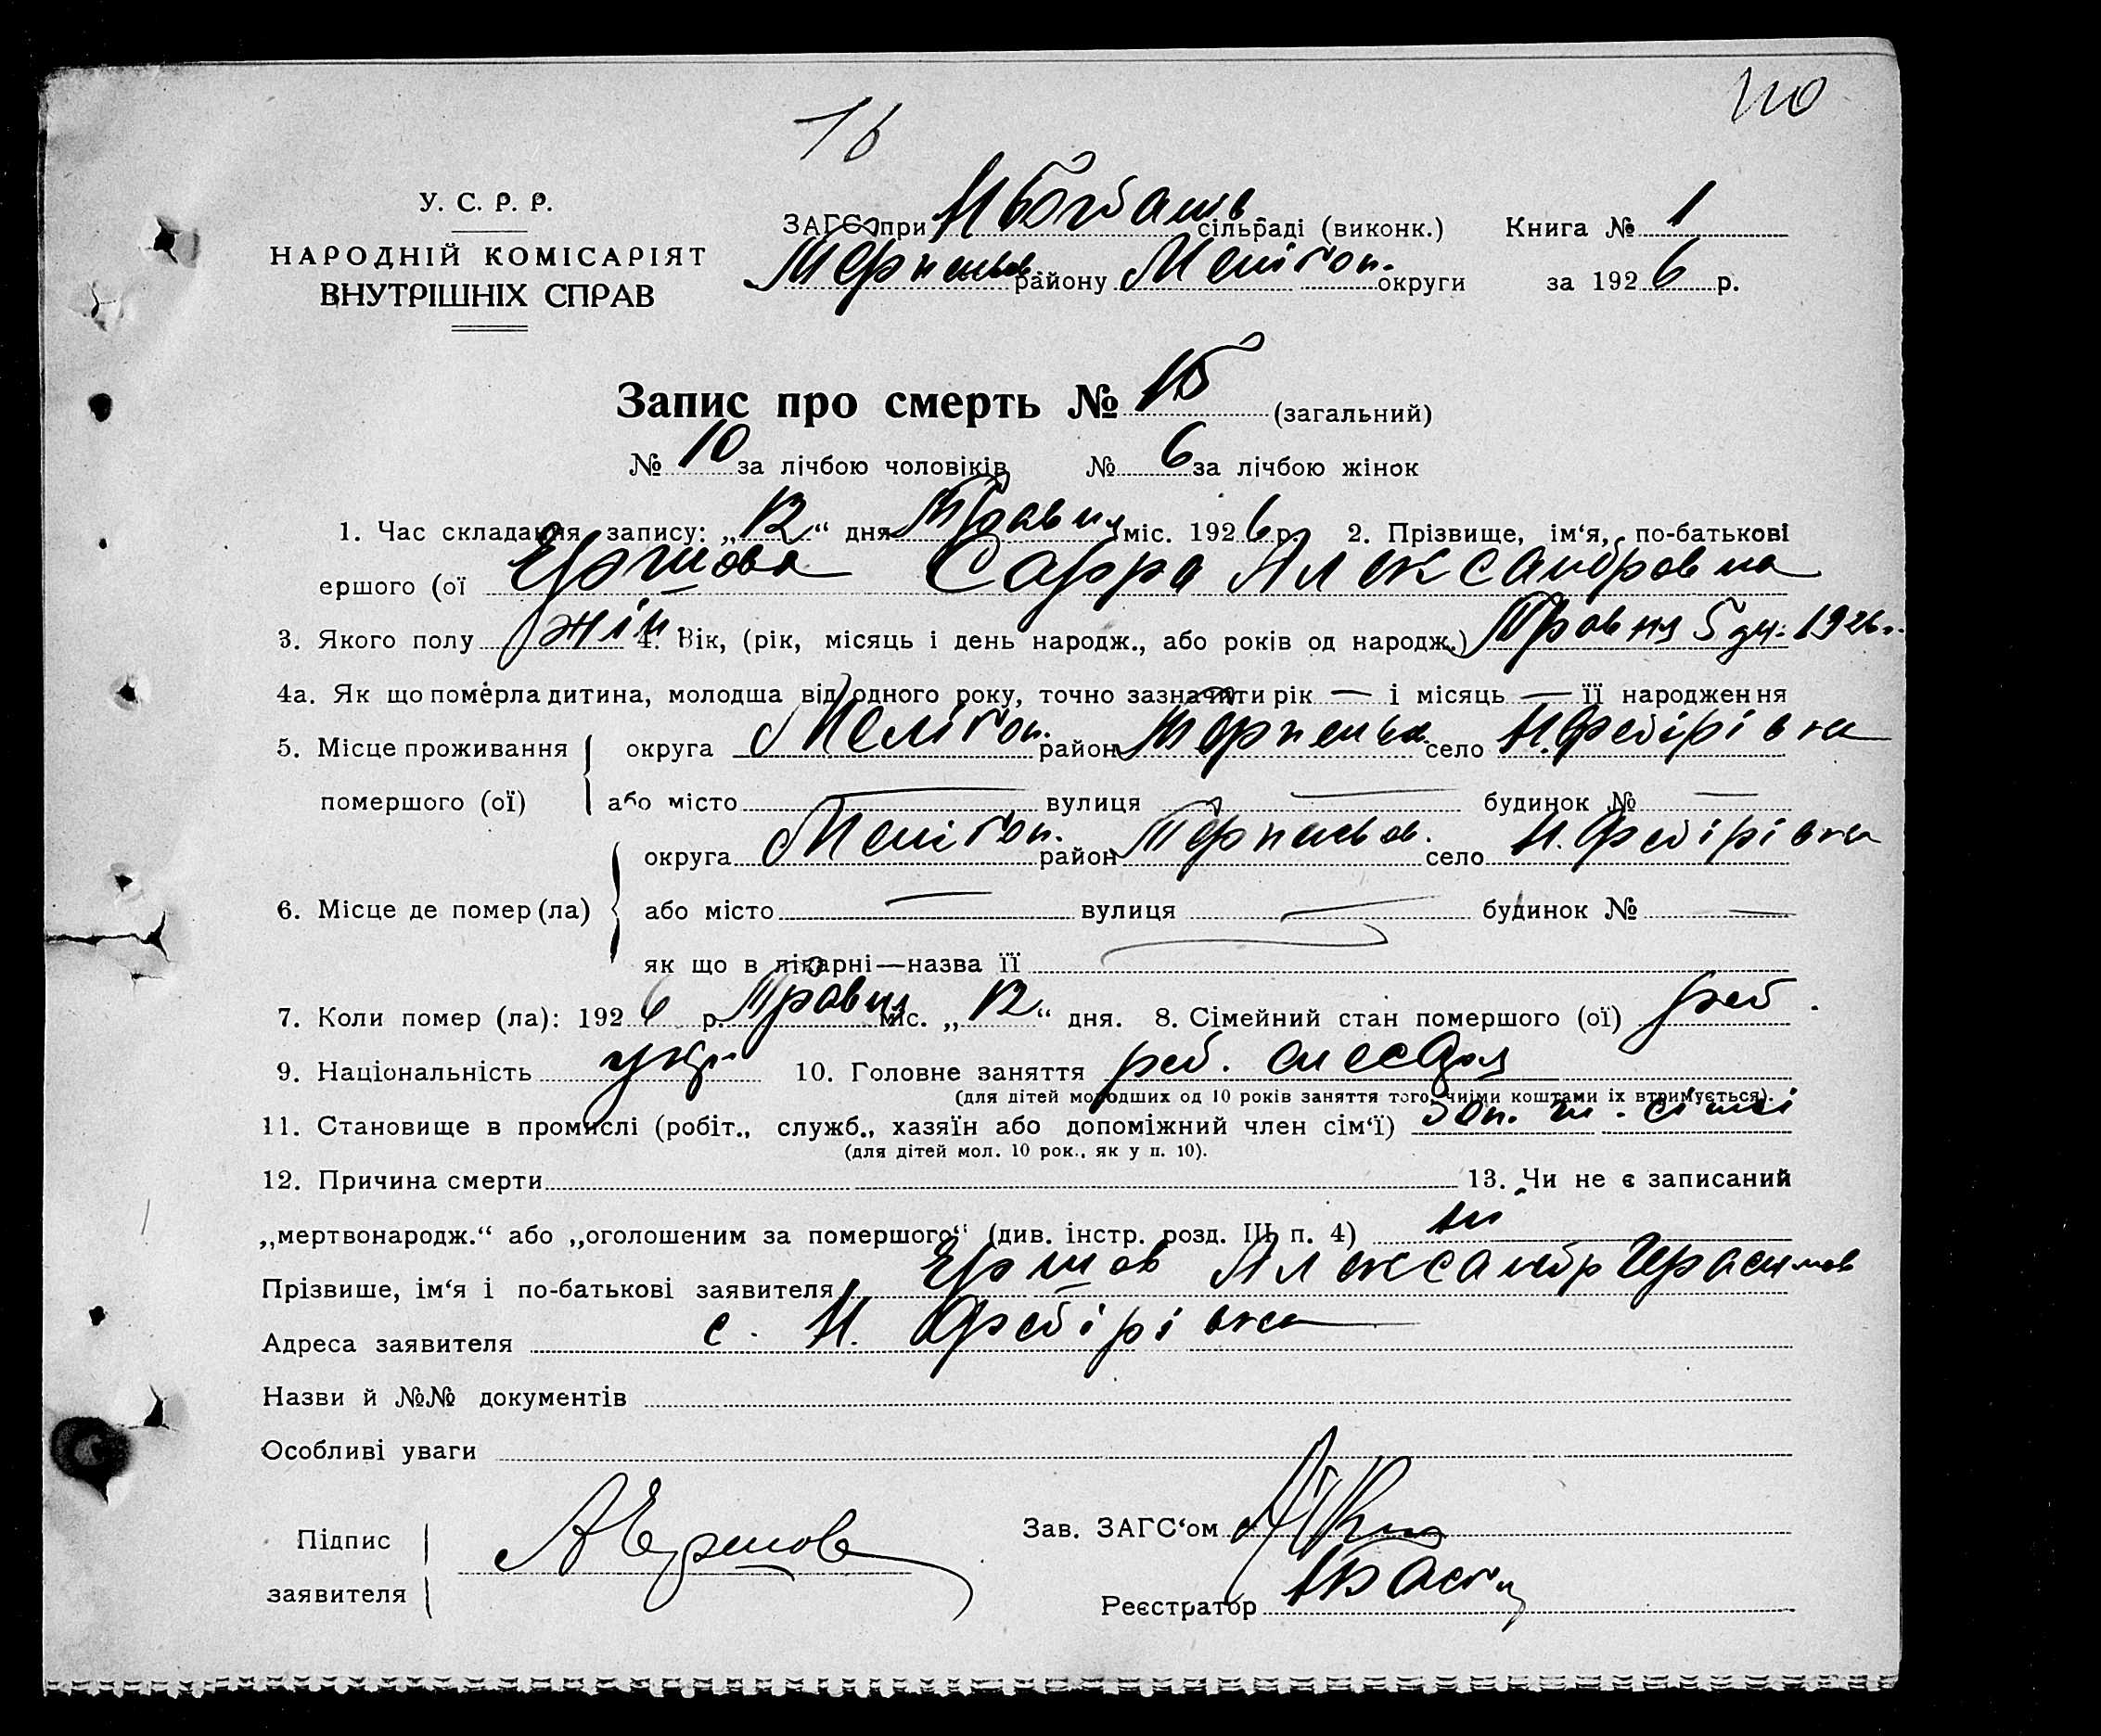 110
16
У. С. Р. Р.
НАРОДНІЙ КОМІСАРІЯТ
ВНУТРІШНІХ СПРАВ
ЗАГС при сільраді (виконк.) Книга № 1
Терпеньев. району Меліtоп. округи за 1926 р.
Запис про смерть № 15 (загальний)
№ 10 за лічбою чоловіків № 6 за лічбою жінок
1. Час складання запису: „12“ дня Травня міс. 1926 р. 2. Прізвище, ім‘я, по-батькові
ершого (ої Ершова Сарра Александровна
3. Якого полу жін. 4. Вік, (рік, місяць і день народж., або років од народж.) Травня 5 дн. 1926 г.
4а. Як що померла дитина, молодша від одного року, точно зазначити рік — і місяць — її народження
5. Місце проживання округа Меліtоп. район Терпеньев. село Н.
помершого (ої) або місто — вулиця — будинок № —
округа Меліtоп. район Терпеньев. село Н.
6. Місце де помер (ла) або місто — вулиця — будинок № —
як що в лікарні—назва її —
7. Коли помер (ла): 1926 р. Травня міс. „12“ дня. 8. Сімейний стан помершого (ої)
9. Національність укр. 10. Головне заняття
(для дітей молодших од 10 років заняття того, чиїми коштами іх втримується).
11. Становище в промислі (робіт., служб., хазяїн або допоміжний член сім‘ї)
(для дітей мол. 10 рок., як у п. 10).
12. Причина смерти 13. Чи не є записаний
„мертвонародж.“ або „оголошеним за помершого“ (див. інстр. розд. III п. 4) ні
Прізвище, ім‘я і по-батькові заявителя Ершов Александр Герасимов
Адреса заявителя с. Н.
Назви й №№ документів
Особливі уваги
Підпис
заявителя
А Ершов
Зав. ЗАГС‘ом
Реєстратор